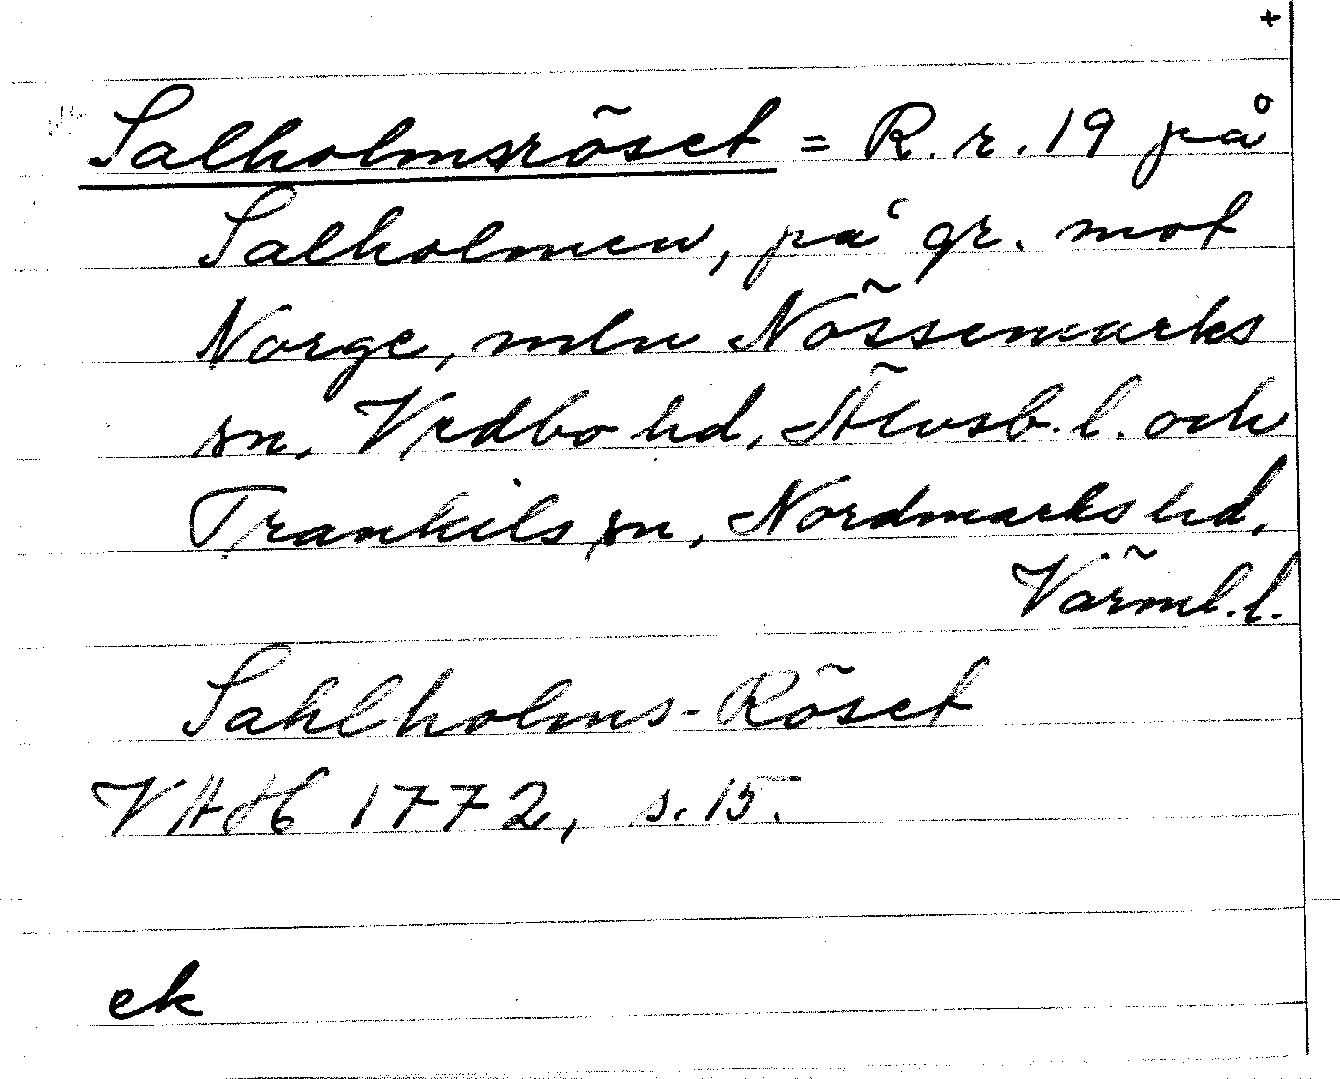 +
Salholmsröset = R.r. 19 på
Salholmen, på gr. mot
Norge, mln Nössemarks
sn, Vedbo hd, Älvsb. l. och
Trankils sn, Nordmarks hd,
Värml. l.
Sahlholms-Röset
VHH 1772, s. 15.
ek